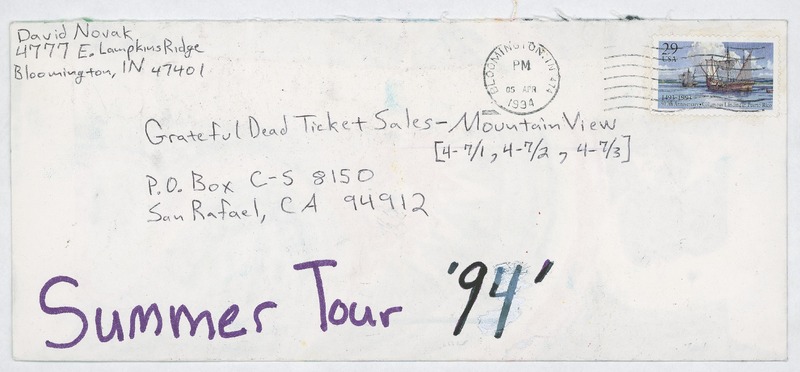 David Novak
4777 E. Lampkins Ridge
Bloomington, IN 47401
BLOOMINGTON, IN 474
PM
05 APR
1994
29
USA
1493-1993
Grateful Dead Ticket Sales - Mountain View
[4-7/1, 4-7/2, 4-7/3]
P.O. Box C-S 8150
San Rafael, CA 94912
Summer Tour '94'